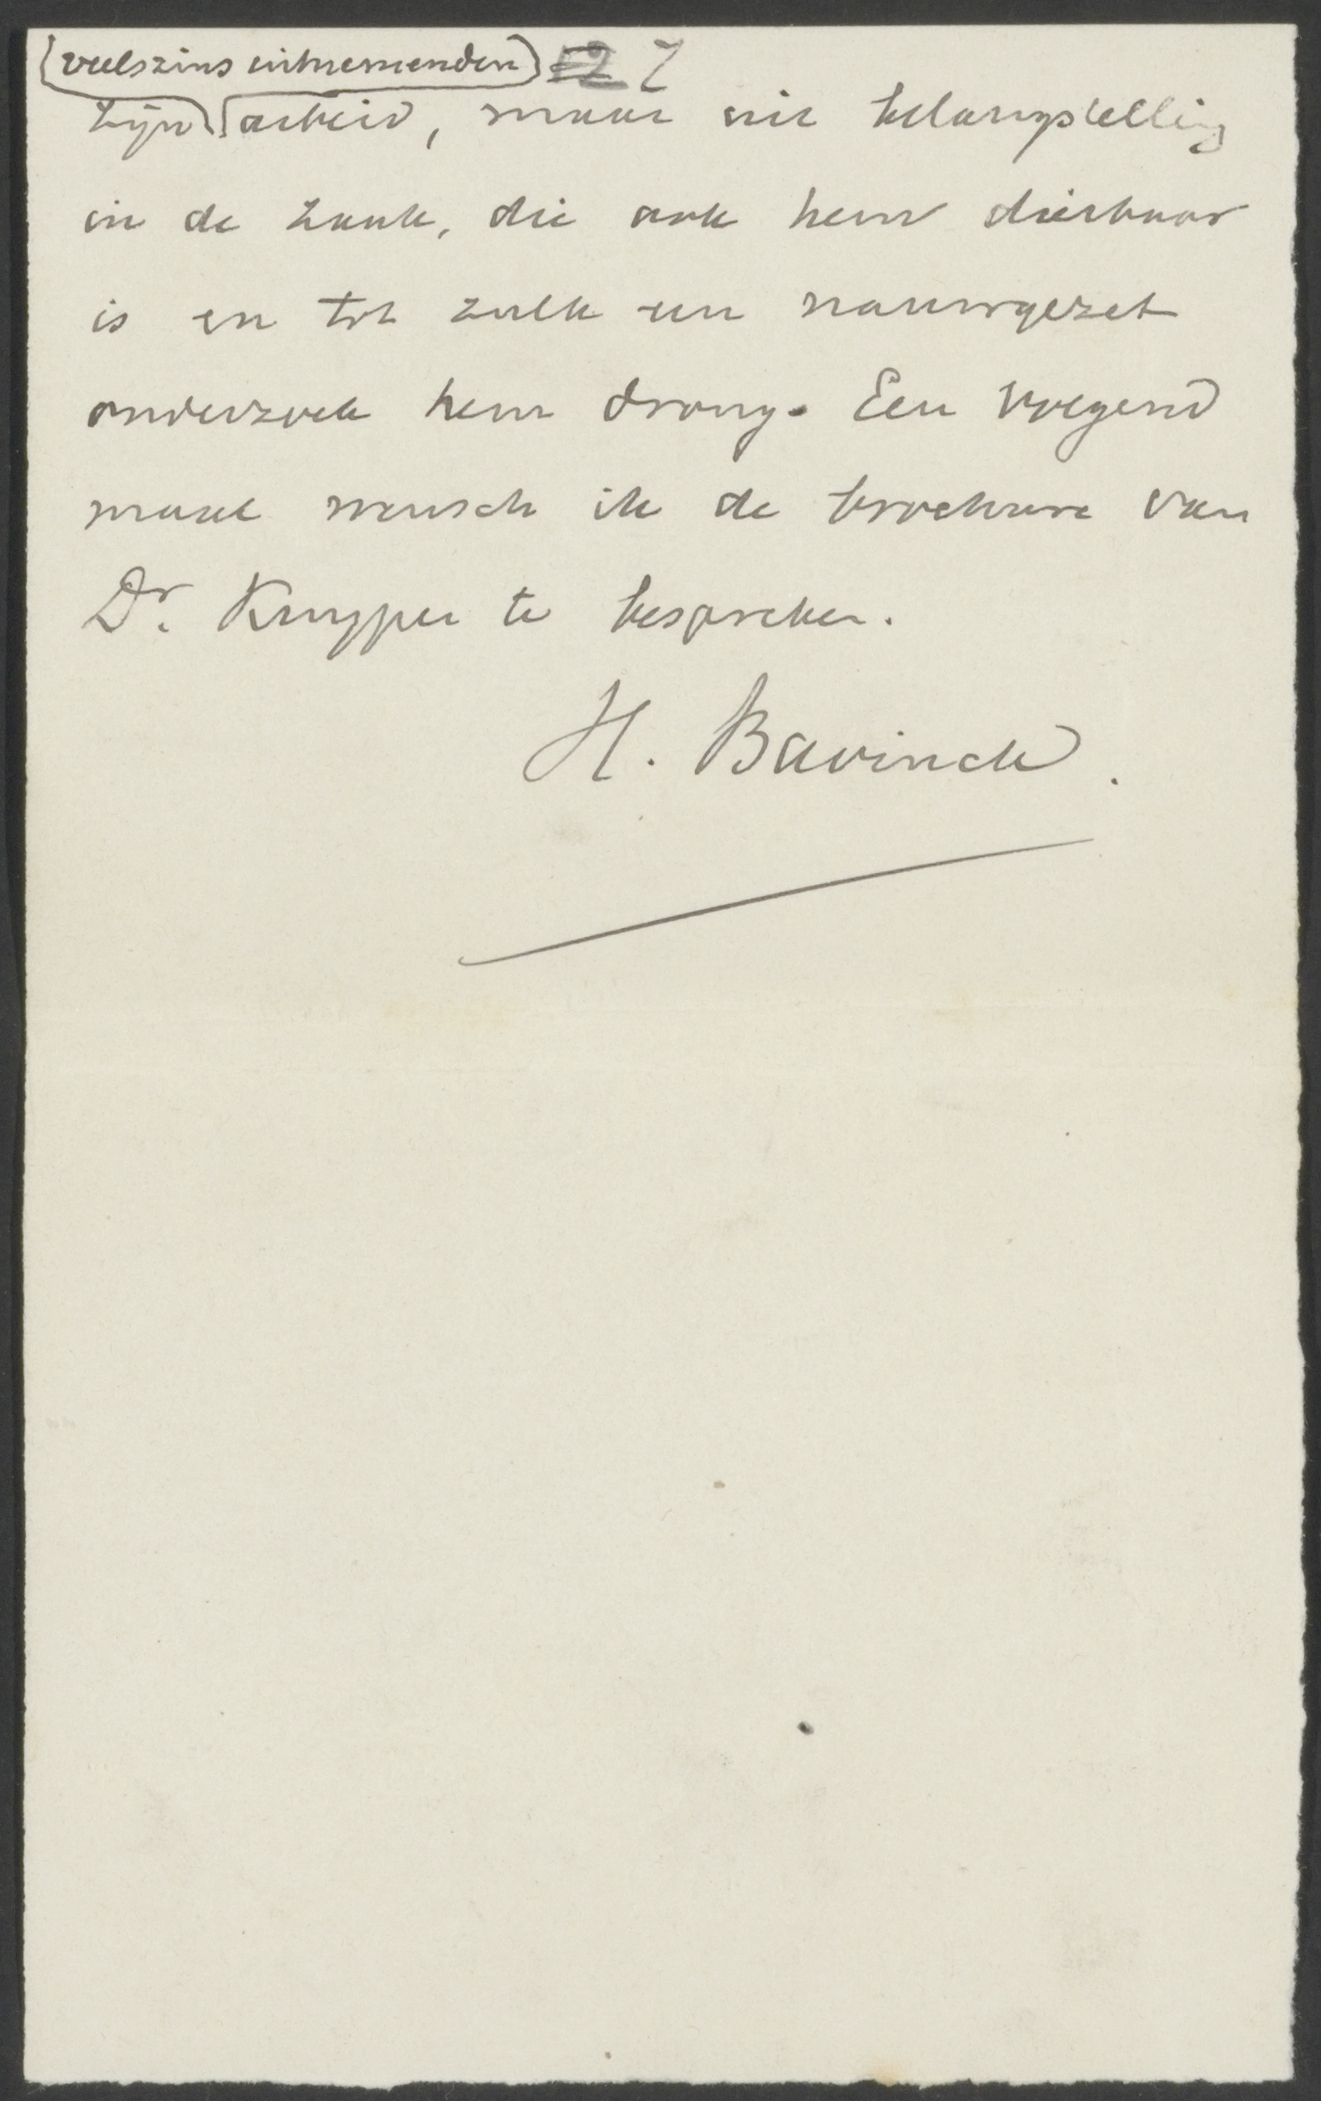 veelszins uitnemenden 7
zijn arbeid, maar uit belangstelling
in de zaak, die ook hem dierbaar
is en tot zulk een nauwgezet
onderzoek hem drong. Een volgend
maal wensch ik de brochure van
Dr. Kuyper te bespreken.
H. Bavinck.